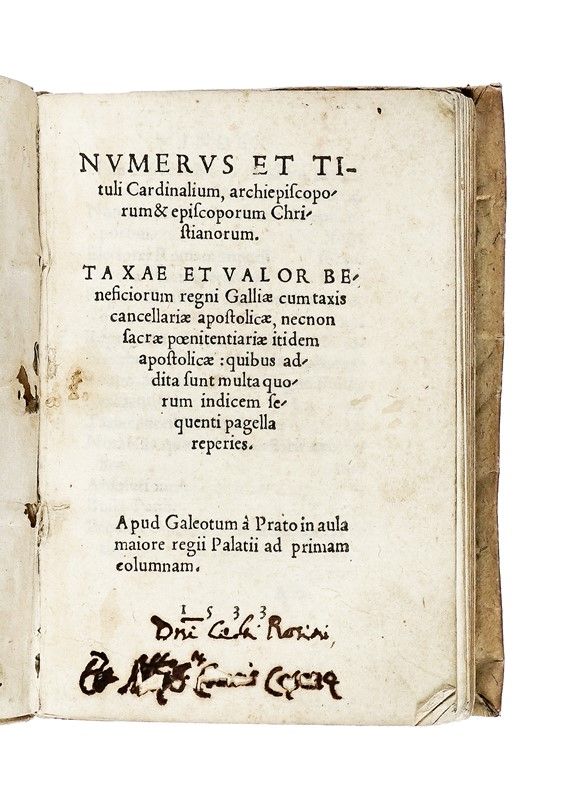 NVMERVS ET TI-
tuli Cardinalium, archiepiſcopo-
rum & epiſcoporum Chri-
ſtianorum.
TAXAE ET VALOR BE-
neficiorum regni Galliæ cum taxis
cancellariæ apoſtolicæ, necnon
ſacræ pœnitentiariæ itidem
apoſtolicæ : quibus ad-
dita ſunt multa quo-
rum indicem ſe-
quenti pagella
reperies.
Apud Galeotum à Prato in aula
maiore regii Palatii ad primam
columnam.
1533